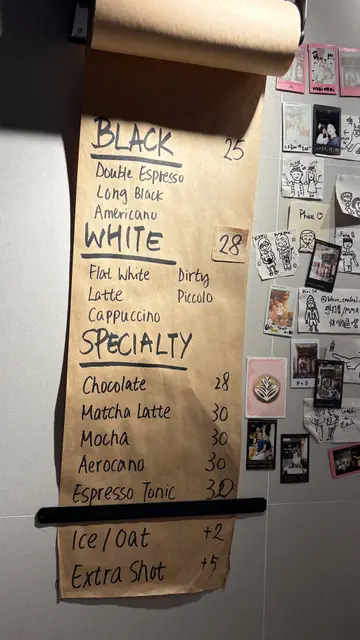 BLACK 25
Double Espresso
Long Black
Americano
WHITE 28
Flat White Dirty
Latte Piccolo
Cappuccino
SPECIALTY
Chocolate 28
Matcha Latte 30
Mocha 30
Aerocano 30
Espresso Tonic 30
Ice/Oat +2
Extra Shot +5
Phee ♡